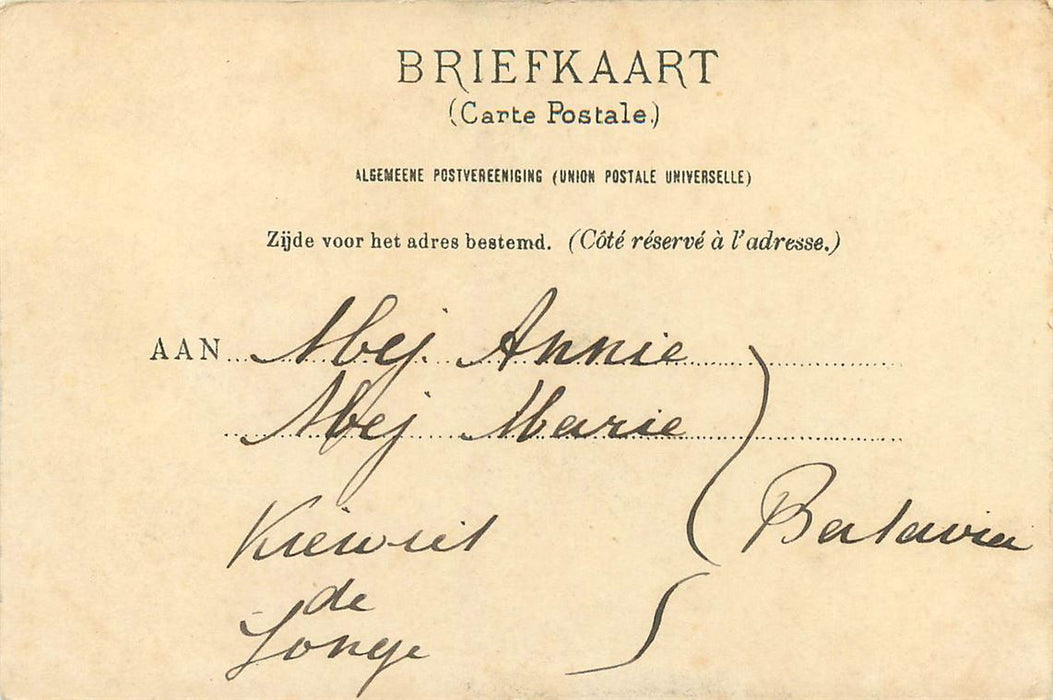 BRIEFKAART
(Carte Postale.)
ALGEMEENE POSTVEREENIGING (UNION POSTALE UNIVERSELLE)
Zijde voor het adres bestemd. (Côté réservé à l'adresse.)
AAN Mej. Annie
Mej Marie
Kiewiet
Batavia
de
Jonge